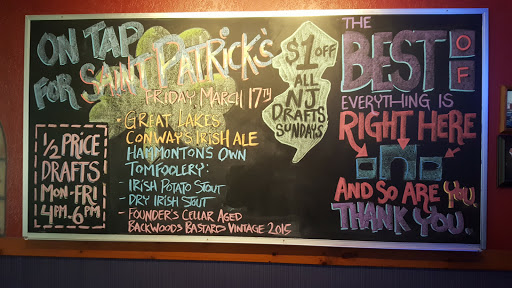 ON TAP
FOR SAINT PATRICK'S
FRIDAY MARCH 17TH
- GREAT LAKES
CONWAY'S IRISH ALE
HAMMONTON'S OWN
TOMFOOLERY:
- IRISH POTATO STOUT
- DRY IRISH STOUT
- FOUNDER'S CELLAR AGED
BACKWOODS BASTARD VINTAGE 2015
1/2 PRICE
DRAFTS
MON-FRI
4PM-6PM
$1 OFF
ALL
NJ
DRAFTS
SUNDAYS
THE
BEST OF
EVERYTHING IS
RIGHT HERE
AND SO ARE YOU.
THANK YOU.